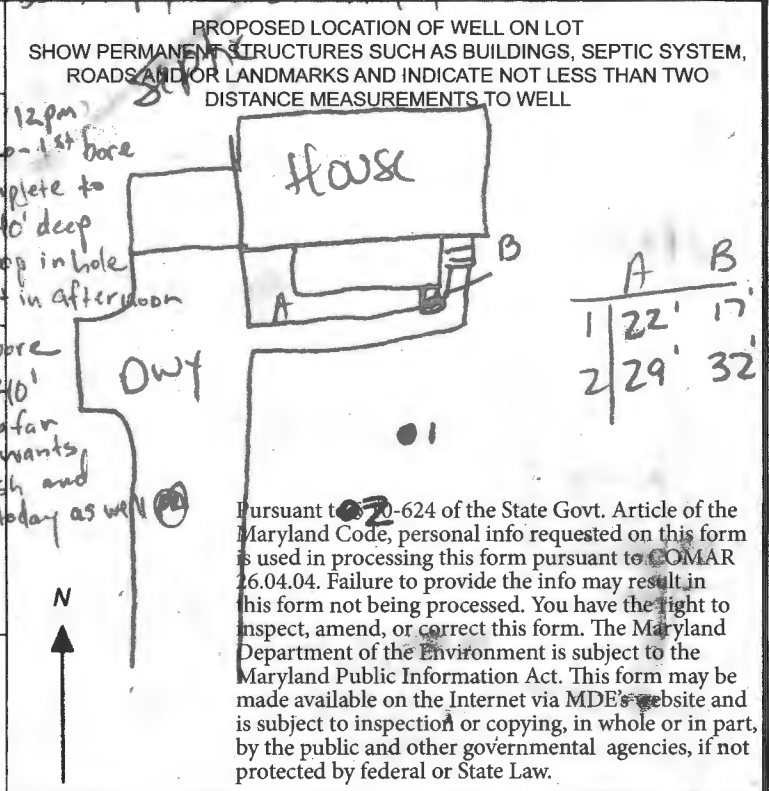 PROPOSED LOCATION OF WELL ON LOT
SHOW PERMANENT STRUCTURES SUCH AS BUILDINGS, SEPTIC SYSTEM,
ROADS AND/OR LANDMARKS AND INDICATE NOT LESS THAN TWO
DISTANCE MEASUREMENTS TO WELL
Septic
12pm
1st bore
plete to
40' deep
in hole
t in afternoon
bore
40'
far
wants
sh and
today as well
House
B
A
Dwy
1
2
A B
1 22' 17'
2 29' 32'
N
Pursuant to 10-624 of the State Govt. Article of the
Maryland Code, personal info requested on this form
is used in processing this form pursuant to COMAR
26.04.04. Failure to provide the info may result in
this form not being processed. You have the right to
inspect, amend, or correct this form. The Maryland
Department of the Environment is subject to the
Maryland Public Information Act. This form may be
made available on the Internet via MDE's website and
is subject to inspection or copying, in whole or in part,
by the public and other governmental agencies, if not
protected by federal or State Law.